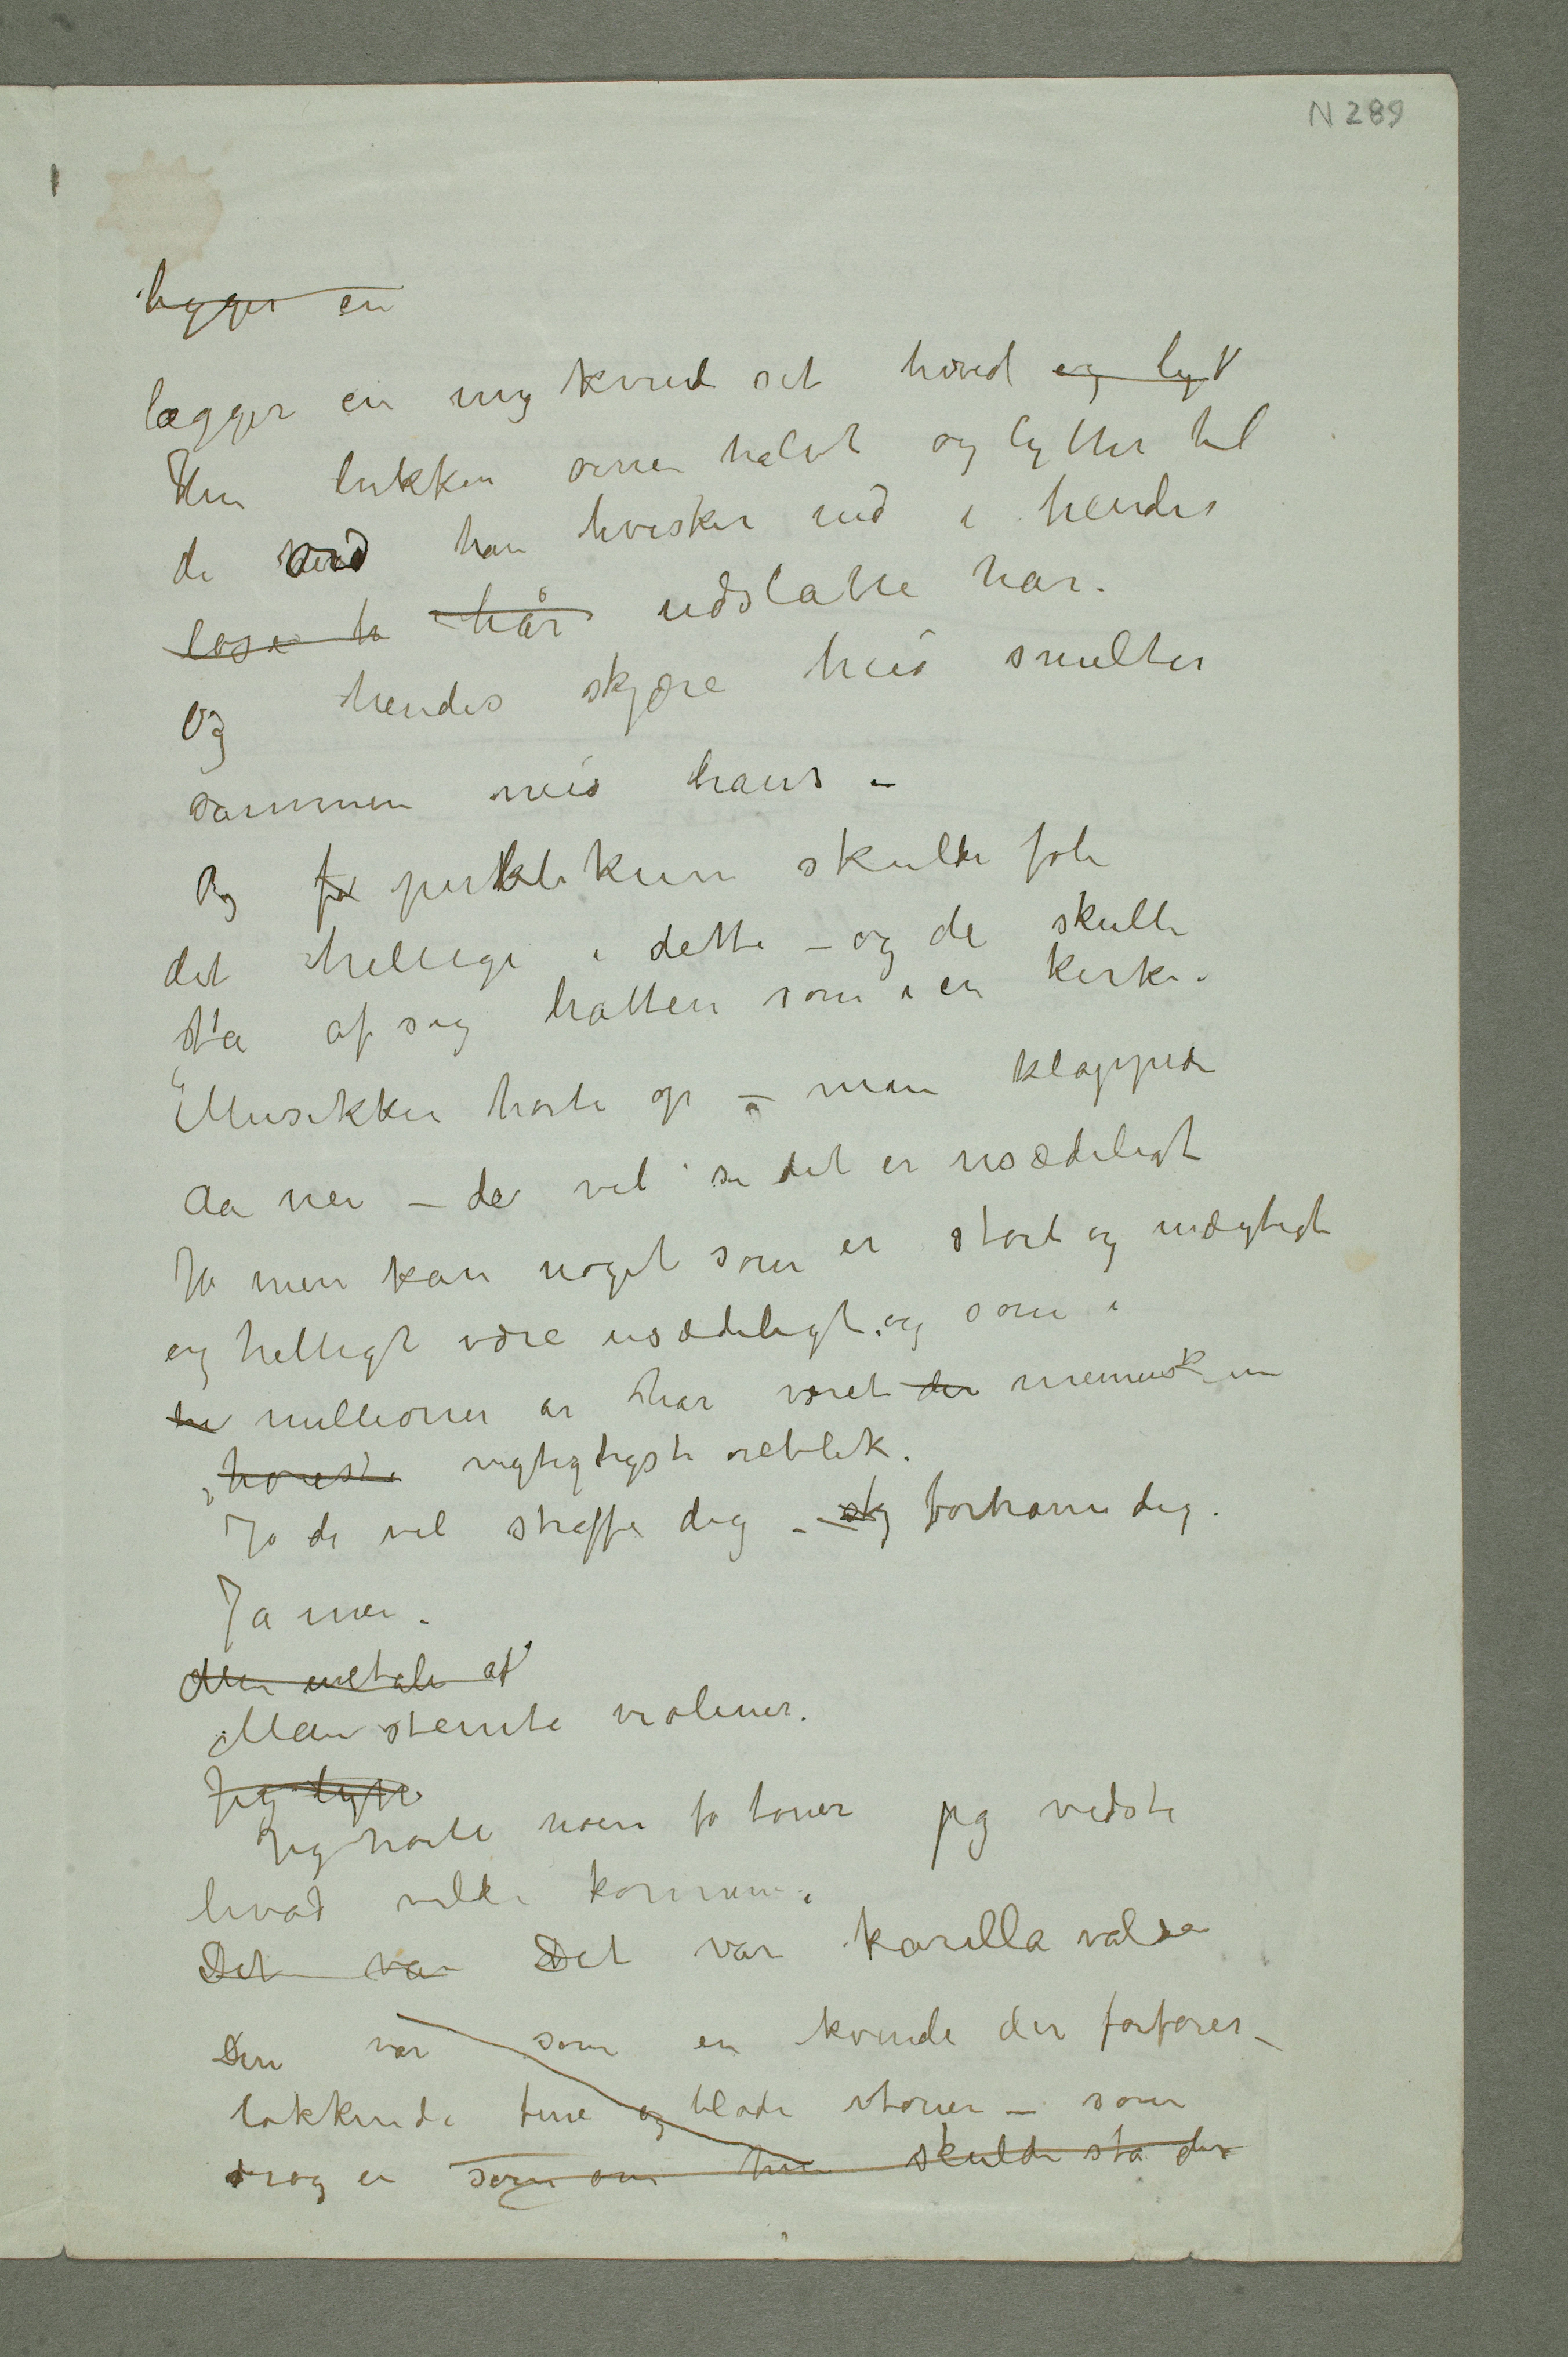 N 289
ligger en
lægger en ung kvinde sit hoved og lyt
Hun lukker øinene halvt og lytter til
de ord han hvisker ind i hendes
løse h hår udslåtte hår.
Og hendes skjære hud smelter
sammen med hans –
Og fo publikum skulde føle
det hellige i dette – og de skulle
ta af sig hatten som i en kirke.
Musikken hørte op – man klappede
Aa nei – de vil si det er usædeligt
Ja men kan noget som er stort og mægtigt
og helligt være usædeligt og som i
millioner år har været der menneskene
høieste vigtigtigste øieblik.
Ja de vil straffe dig – forhåne dig.
Ja men.
Man stemte violiner.
Jeg lytte
Jeg hørte noen få toner jeg vidste
hvad vilde komme.
Det var Det var karilla valsen
Den var som en kvinde der forfører –
lokkende fine og bløde toner – som
drog en som om hun skulde stå der